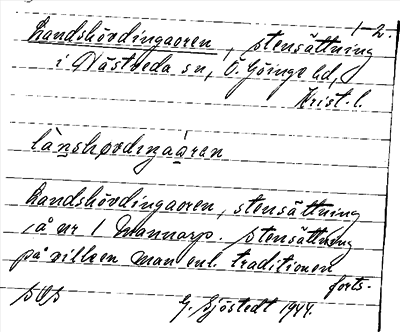 1-2.
Landshövdingaoren, stensättning
i Västveda sn, Ö. Göinge hd,
Krist. l.
lànshøvdiŋaáran
Landshövdingaoren, stensättning
i å nr 1 Mannarp. stensättning
på vilken man enl. traditionen
forts.
G. Sjöstedt 1944.